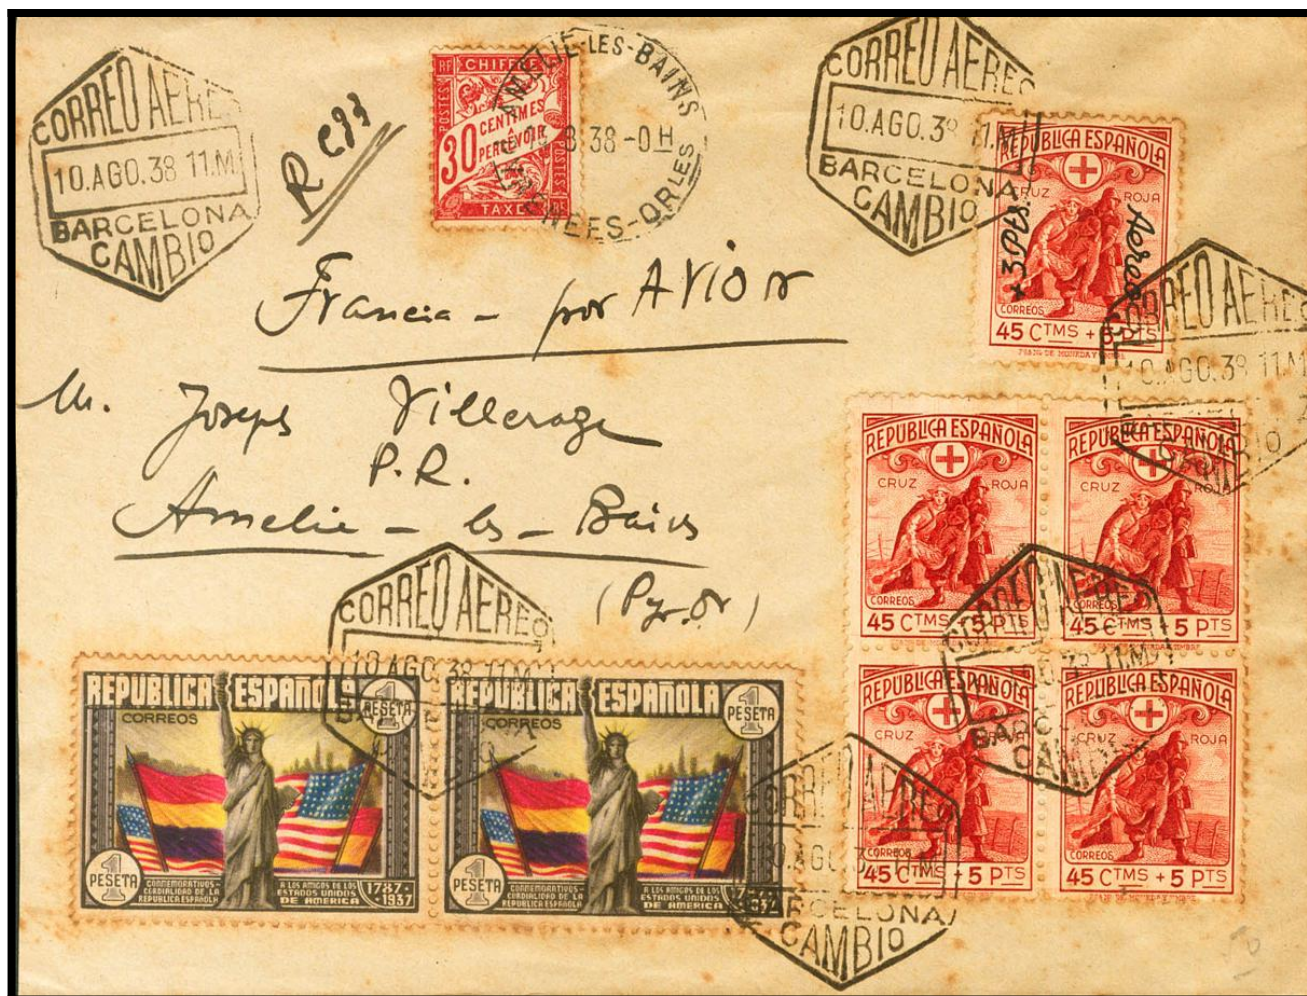 CORREO AEREO
10.AGO.38 11.M
BARCELONA
CAMBIO
RF CHIFFRE
POSTES
30 CENTIMES
À
PERCEVOIR
POSTES
TAXE
AMELIE-LES-BAINS
8 38-0H
PYRENEES-ORLES
CORREO AEREO
10.AGO.38 11.M
BARCELONA
CAMBIO
REPUBLICA ESPAÑOLA
CRUZ ROJA
+ 3 Pts. Aereo
CORREOS
45 CTMS + 5 PTS
CORREO AEREO
10.AGO.38 11.M
Francia - por AVION
M. Joseph
P.R.
Amelie - les - Bains
(Pyr. Or)
REPUBLICA ESPAÑOLA
CRUZ ROJA
CORREOS
45 CTMS + 5 PTS
REPUBLICA ESPAÑOLA
CRUZ ROJA
CORREOS
45 CTMS + 5 PTS
CORREO AEREO
10.AGO.38 11.M
CORREO AEREO
11.M
BARCELONA
CAMBIO
REPUBLICA ESPAÑOLA
CRUZ ROJA
CORREOS
45 CTMS + 5 PTS
REPUBLICA ESPAÑOLA
CRUZ ROJA
CORREOS
45 CTMS + 5 PTS
REPUBLICA ESPAÑOLA
1 PESETA
CORREOS
1 PESETA
CONMEMORATIVOS-
CORDIALIDAD DE LA
REPUBLICA ESPAÑOLA
A LOS AMIGOS DE LOS
ESTADOS UNIDOS
DE AMERICA
1787-
1937
REPUBLICA ESPAÑOLA
1 PESETA
CORREOS
1 PESETA
CONMEMORATIVOS-
CORDIALIDAD DE LA
REPUBLICA ESPAÑOLA
A LOS AMIGOS DE LOS
ESTADOS UNIDOS
DE AMERICA
CORREO AEREO
BARCELONA
CAMBIO